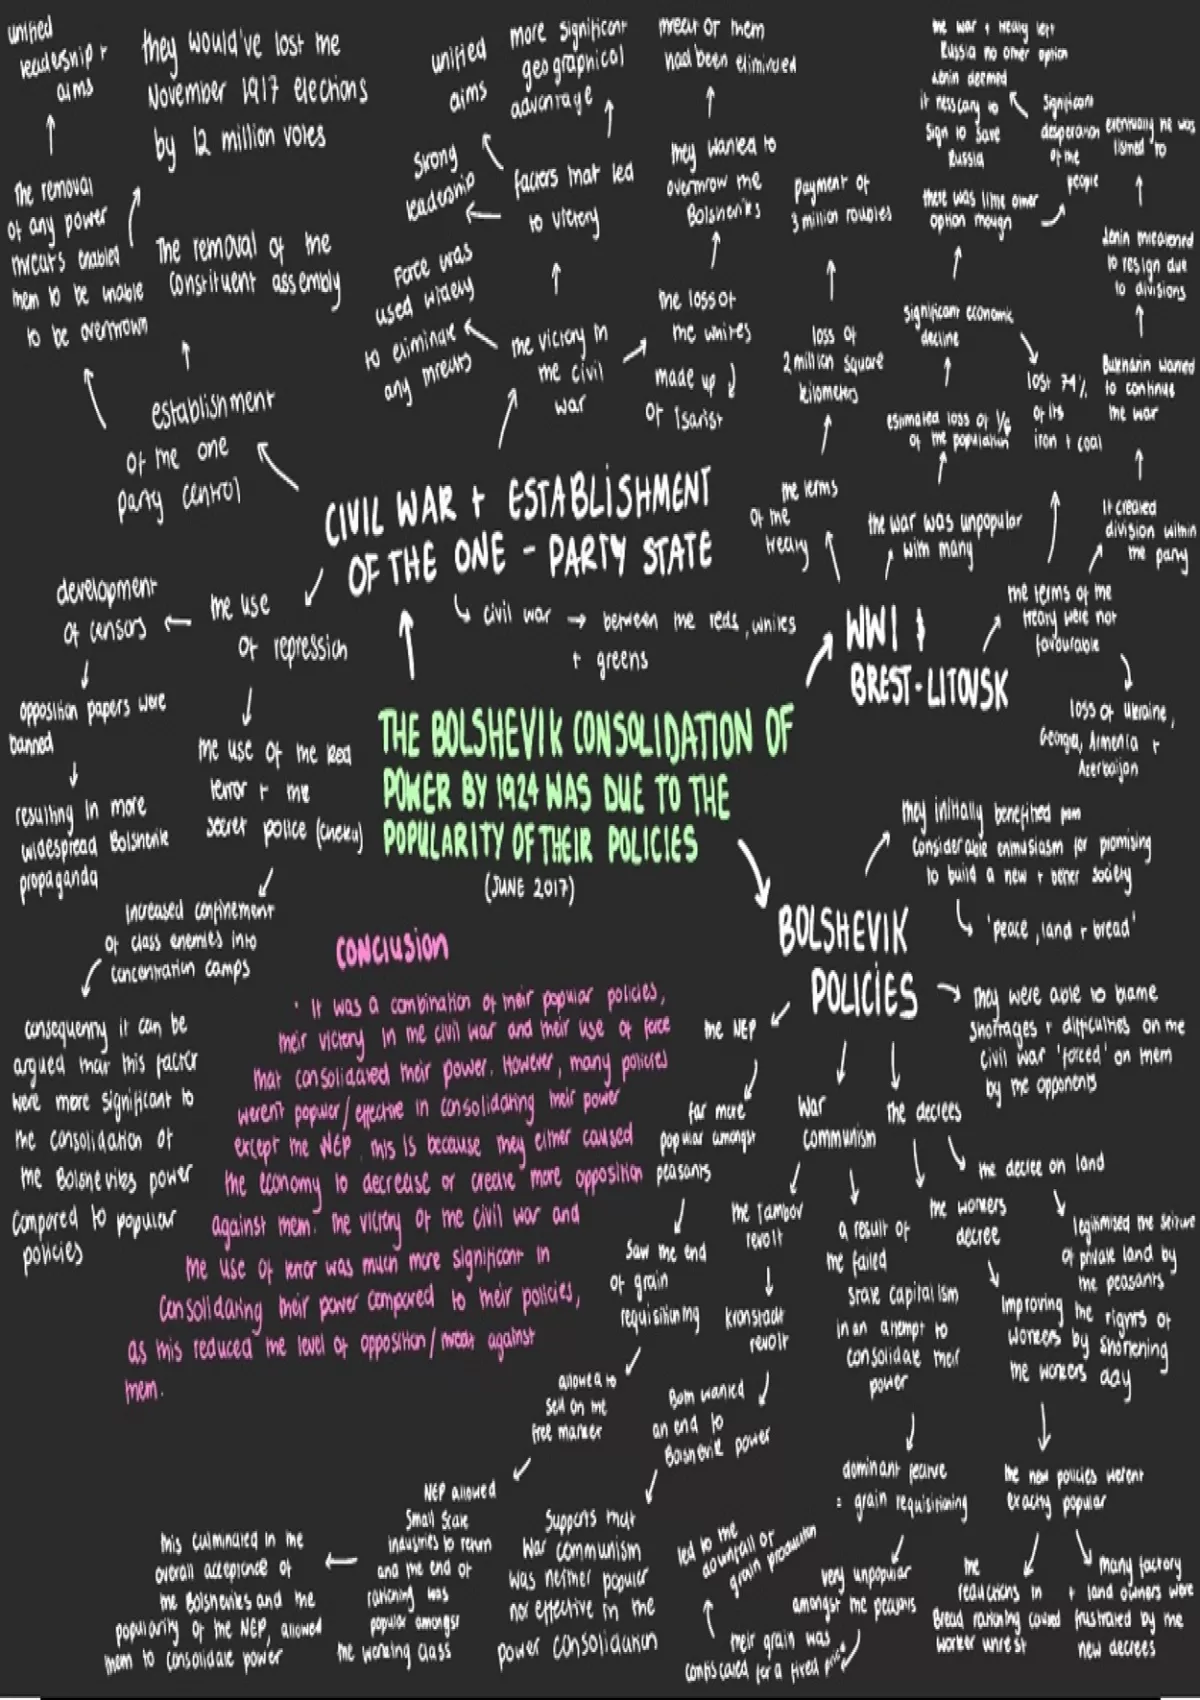 unified
leadership +
aims
they would've lost the
November 1917 elections
by 12 million votes
The removal
of any power
threats enabled
them to be unable
to be overthrown
The removal of the
constituent assembly
establishment
of the one
party control
unified
aims
more significant
geographical
advantage
strong
leadership
factors that led
to victory
Force was
used widely
to eliminate
any threats
the victory in
the civil
war
threat of them
had been eliminated
they wanted to
overthrow the
Bolsheviks
the loss of
the whites
made up
of Tsarist
payment of
3 million roubles
loss of
2 million square
kilometers
the terms
of the
treaty
the war + treaty left
Russia no other option
Lenin deemed
it nesscary to
sign to save
Russia
significant
desperation
of the
people
eventually he was
listned to
there was little other
option though
Lenin threatened
to resign due
to divisions
significant economic
decline
Bukharin wanted
to continue
the war
lost 74%
of its
iron + coal
estimated loss of 1/6
of the population
the war was unpopular
with many
It created
division within
the party
the terms of the
treaty were not
favourable
loss of Ukraine,
Georgia, Armenia +
Azerbaijan
CIVIL WAR + ESTABLISHMENT
OF THE ONE - PARTY STATE
civil war → between the reds, whites
+ greens
WWI +
BREST-LITOVSK
development
of censors
the use
of repression
opposition papers were
banned
resulting in more
widespread Bolshevik
propaganda
the use of the Red
terror + the
secret police (cheka)
increased confinement
of class enemies into
concentration camps
consequently it can be
argued that this factor
were more significant to
the consolidation of
the Bolsheviks power
compared to popular
policies
THE BOLSHEVIK CONSOLIDATION OF
POWER BY 1924 WAS DUE TO THE
POPULARITY OF THEIR POLICIES
(JUNE 2017)
CONCLUSION
· It was a combination of their popular policies,
their victory in the civil war and their use of force
that consolidated their power. However, many policies
weren't popular/effective in consolidating their power
except the NEP. this is because they either caused
the economy to decrease or create more opposition
against them. The victory of the civil war and
the use of terror was much more significant in
consolidating their power compared to their policies,
as this reduced the level of opposition/threat against
them.
BOLSHEVIK
POLICIES
they initially benefited from
considerable enthusiasm for promising
to build a new + better society
'peace, land + bread'
They were able to blame
shortages + difficulties on the
civil war 'forced' on them
by the opponents
the NEP
far more
popular amongst
peasants
saw the end
of grain
requisitioning
allowed to
sell on the
free market
NEP allowed
small scale
industries to return
and the end of
rationing was
popular amongst
the working class
this culminated in the
overall acceptance of
the Bolsheviks and the
popularity of the NEP, allowed
them to consolidate power
war
communism
the Tambov
revolt
kronstadt
revolt
Both wanted
an end to
Bolshevik power
Supports that
war communism
was neither popular
nor effective in the
power consolidation
a result of
the failed
state capitalism
in an attempt to
consolidate their
power
dominant feature
= grain requisitioning
very unpopular
amongst the peasants
their grain was
confiscated for a fixed price
led to the
downfall of
grain production
the decrees
the decree on land
legitimised the seizure
of private land by
the peasants
the workers
decree
improving the rights of
workers by shortening
the workers day
the new policies werent
exactly popular
the
reductions in
Bread rationing caused
worker unrest
many factory
+ land owners were
frustrated by the
new decrees